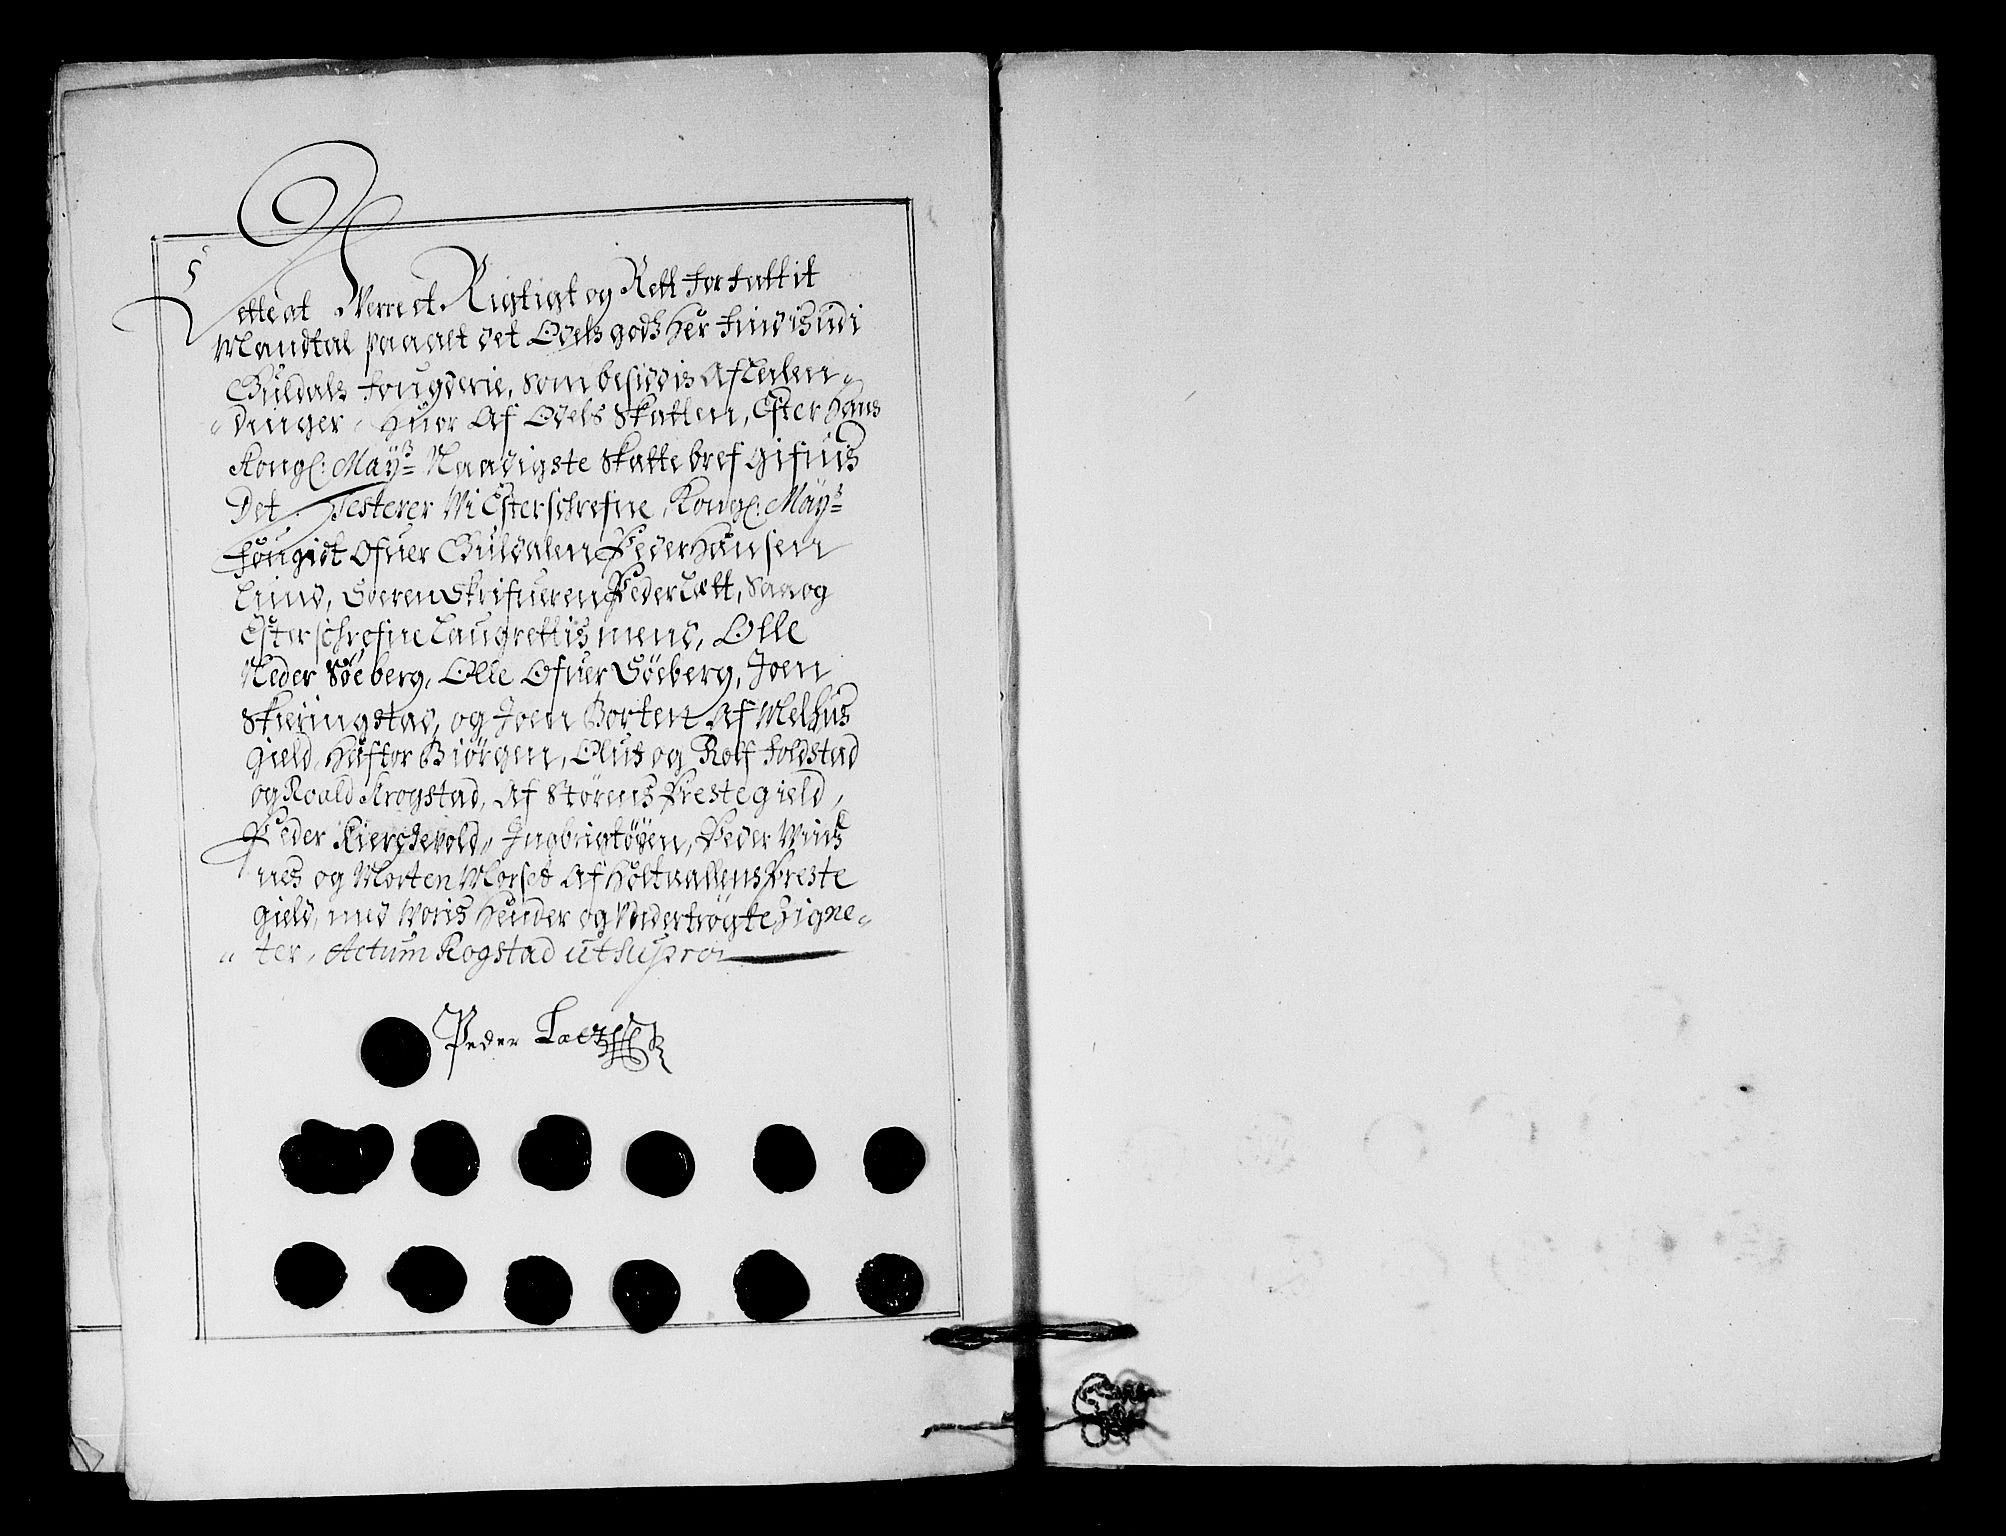 Dette at Verre et Rigtigt og Rett forfattit
Mandtal paa alt det Odels gods Her findis udi
Guldals fougderie, som besiddis Af Leilen-
dinger, Huor Af Odels Skatten, Efter Hans
Kongl: May: Naadigste Skattebref gifuis
Det Testerer Wi Efterschrefne, Kongl: May:
fougidt Ofuer Guldalen Peder Hansen
Lund, Soeren Skrifueren Peder Lætt, Saa og
Efterschrefne Laugrettis mend, Olle
Neder Söeberg, Olle Ofuer Söeberg, Joen
Skieringstad, og Joen Borten Af Melhus
gield, Haftor Biörgen, Oluf og Rolf foldstad
og Roald Krogstad, Af Störens Prestegield,
Peder Kierchevold, Ingbrigt öyen, Peder Wins
nes og Morten Morset Af Holtaallens Preste
gield, med Woris Hender og Undertrögte Zigne-
ter, Actum Rogstad ut supra
Peder Laet